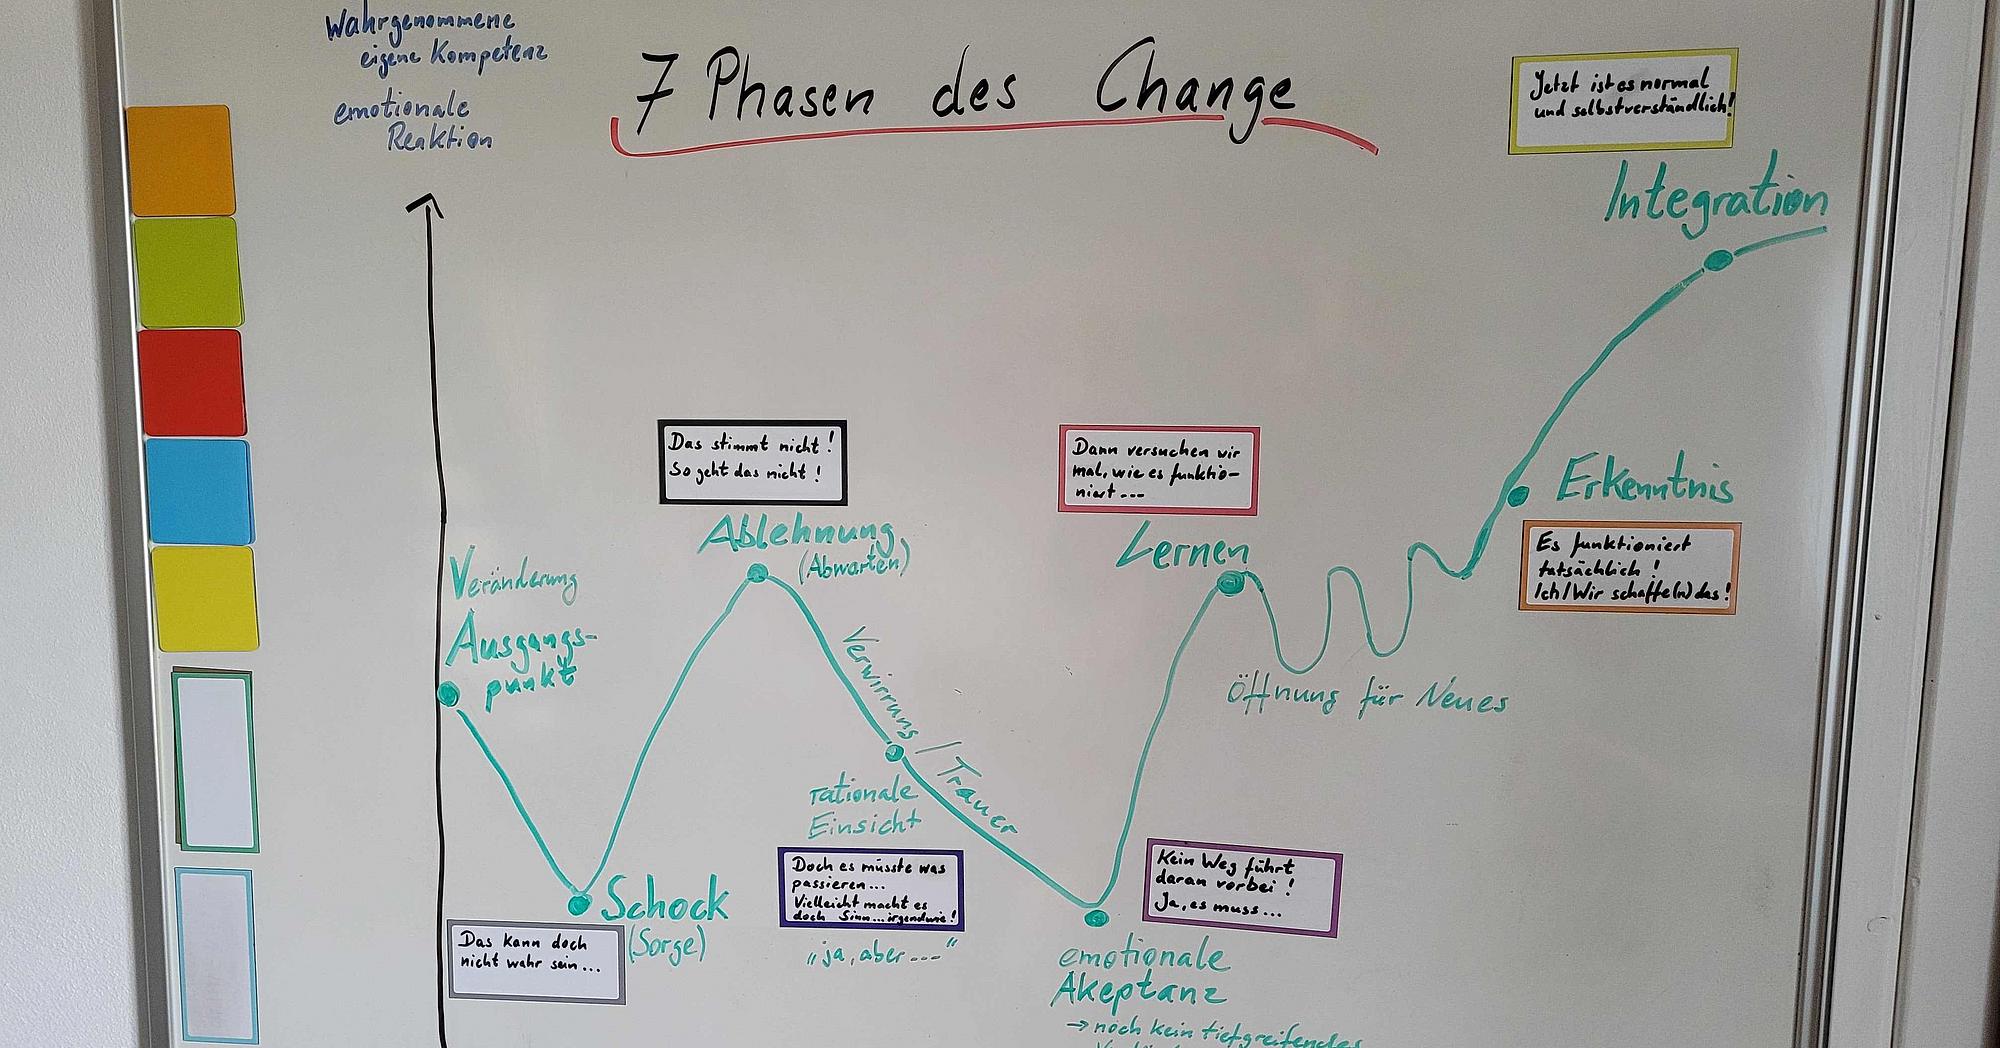 Wahrgenommene
eigene Kompetenz
emotionale
Reaktion
7 Phasen des Change
Jetzt ist es normal
und selbstverständlich!
Integration
Das stimmt nicht!
So geht das nicht!
Ablehnung
(Abwarten)
Dann versuchen wir
mal, wie es funktio-
niert...
Lernen
Erkenntnis
Es funktioniert
tatsächlich!
Ich/Wir schaffe(n) das!
Veränderung
Ausgangs-
punkt
Verwirrung / Trauer
Öffnung für Neues
rationale
Einsicht
Doch es müsste was
passieren...
Vielleicht macht es
doch Sinn...irgendwie!
„ja, aber ...“
Schock
(Sorge)
Das kann doch
nicht wahr sein...
Kein Weg führt
daran vorbei!
Ja, es muss...
emotionale
Akeptanz
→ noch kein tiefgreifendes